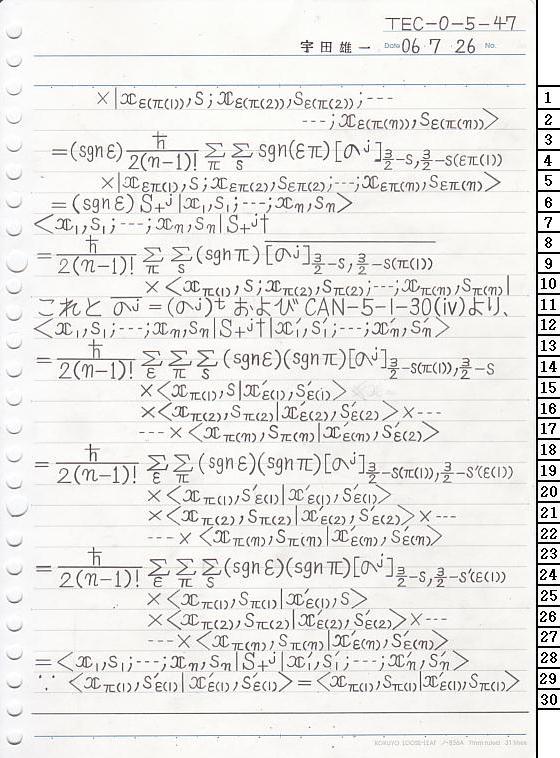 TEC-0-5-47
宇田雄一 Date 06・7・26 No.
×|x_{ε(π(1))}, S; x_{ε(π(2))}, S_{ε(π(2))}; ---
---; x_{ε(π(n))}, S_{ε(π(n))}>
= (sgn ε) ħ/2(n-1)! Σ_π Σ_s sgn(επ) [σ^j]_{3/2-S, 3/2-S(επ(1))}
×|x_{επ(1)}, S; x_{επ(2)}, S_{επ(2)}; ---; x_{επ(n)}, S_{επ(n)}>
= (sgn ε) S_+^j |x_1, S_1; ---; x_n, S_n>
<x_1, S_1; ---; x_n, S_n| S_+^{j†}
= ħ/2(n-1)! Σ_π Σ_s (sgn π) \overline{[σ^j]_{3/2-S, 3/2-S(π(1))}}
× <x_{π(1)}, S; x_{π(2)}, S_{π(2)}; ---; x_{π(n)}, S_{π(n)}|
これと \overline{σ^j} = (σ^j)^t および CAN-5-1-30(iv)より、
<x_1, S_1; ---; x_n, S_n| S_+^{j†} |x'_1, S'_1; ---; x'_n, S'_n>
= ħ/2(n-1)! Σ_ε Σ_π Σ_s (sgn ε)(sgn π) [σ^j]_{3/2-S(π(1)), 3/2-S}
× <x_{π(1)}, S|x'_{ε(1)}, S'_{ε(1)}>
× <x_{π(2)}, S_{π(2)}|x'_{ε(2)}, S'_{ε(2)}> × ---
--- × <x_{π(n)}, S_{π(n)}|x'_{ε(n)}, S'_{ε(2)}>
= ħ/2(n-1)! Σ_ε Σ_π (sgn ε)(sgn π) [σ^j]_{3/2-S(π(1)), 3/2-S'(ε(1))}
× <x_{π(1)}, S'_{ε(1)}|x'_{ε(1)}, S'_{ε(1)}>
× <x_{π(2)}, S_{π(2)}|x'_{ε(2)}, S'_{ε(2)}> × ---
--- × <x_{π(n)}, S_{π(n)}|x'_{ε(n)}, S'_{ε(n)}>
= ħ/2(n-1)! Σ_ε Σ_π Σ_s (sgn ε)(sgn π) [σ^j]_{3/2-S, 3/2-S'(ε(1))}
× <x_{π(1)}, S_{π(1)}|x'_{ε(1)}, S>
× <x_{π(2)}, S_{π(2)}|x'_{ε(2)}, S'_{ε(2)}> × ---
--- × <x_{π(n)}, S_{π(n)}|x'_{ε(n)}, S'_{ε(n)}>
= <x_1, S_1; ---; x_n, S_n| S_+^j |x'_1, S'_1; ---; x'_n, S'_n>
∵ <x_{π(1)}, S'_{ε(1)}|x'_{ε(1)}, S'_{ε(1)}> = <x_{π(1)}, S_{π(1)}|x'_{ε(1)}, S_{π(1)}>
KOKUYO LOOSE-LEAF ノ-836A 7mm ruled 31 lines
1
2
3
4
5
6
7
8
9
10
11
12
13
14
15
16
17
18
19
20
21
22
23
24
25
26
27
28
29
30